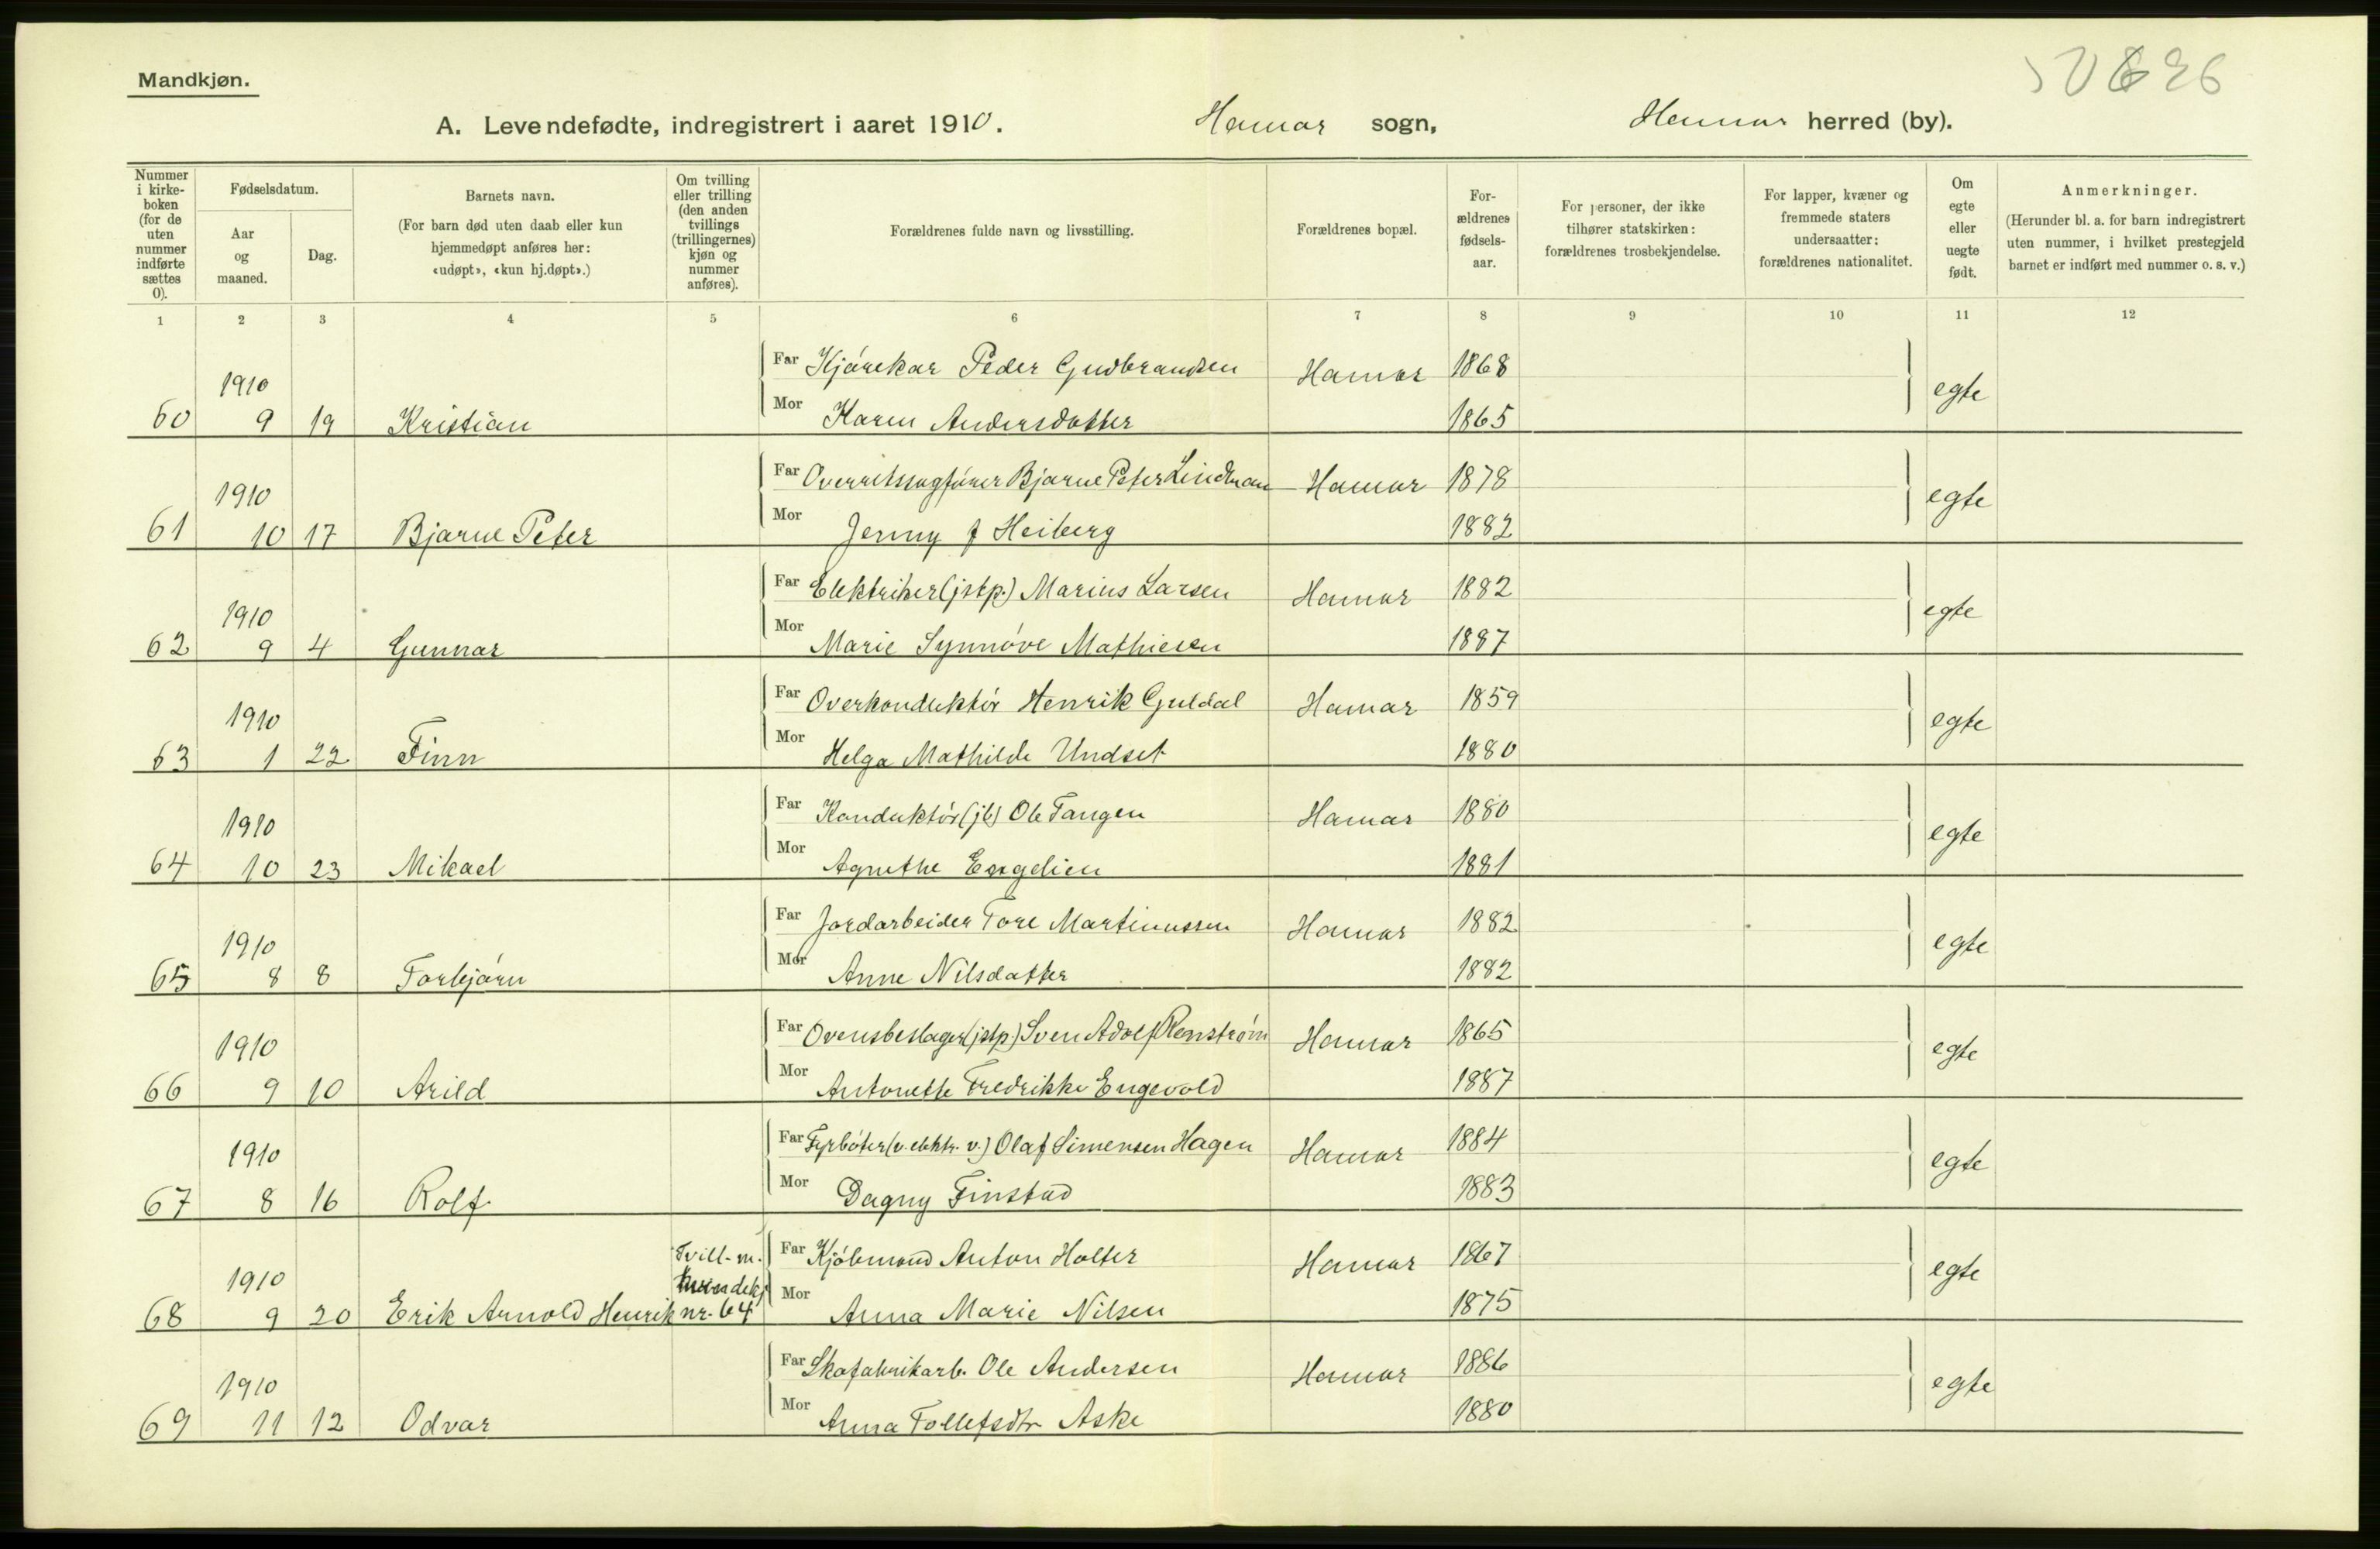 Mandkjøn.
A. Levendefødte, indregistrert i aaret 1910. Hamar sogn, Hamar herred (by).
Nummer i kirke-boken (for de uten nummer indførte sættes 0).
Fødselsdatum.
Aar og maaned.
Dag.
Barnets navn.
(For barn død uten daab eller kun
hjemmedøpt anføres her:
«udøpt», «kun hj.døpt».)
Om tvilling
eller trilling
(den anden
tvillings
(trillingernes)
kjøn og
nummer
anføres).
Forældrenes fulde navn og livsstilling.
Forældrenes bopæl.
For-
ældrenes
fødsels-
aar.
For personer, der ikke
tilhører statskirken:
forældrenes trosbekjendelse.
For lapper, kvæner og
fremmede staters
undersaatter:
forældrenes nationalitet.
Om
egte
eller
uegte
født.
Anmerkninger.
(Herunder bl. a. for barn indregistrert
uten nummer, i hvilket prestegjeld
barnet er indført med nummer o. s. v.)
1 2 3 4 5 6 7 8 9 10 11 12
Far Kjørekar Peder Gudbrandsen Hamar 1868
1910 egte
60 9 19 Kristian Mor Karen Andersdatter 1865
Far Overretssagfører Bjarne Peter Lindman Hamar 1878
1910 egte
61 10 17 Bjarne Peter Mor Jenny f Heiberg 1882
Far Elektriker (jstp.) Marius Larsen Hamar 1882
1910 egte
62 9 4 Gunnar Mor Marie Synnøve Mathiesen 1887
Far Overkonduktør Henrik Guldal Hamar 1859
1910 egte
63 1 22 Finn Mor Helga Mathilde Undset 1880
Far Konduktør (jb) Ole Tangen Hamar 1880
1910 egte
64 10 23 Mikael Mor Agnethe Engelien 1881
Far Jordarbeider Tore Martinussen Hamar 1882
1910 egte
65 8 8 Torbjørn Mor Anne Nilsdatter 1882
Far Ovensbeslager (jstp.) Sven Adolf Renstrøm Hamar 1865
1910 egte
66 9 10 Arild Mor Antonette Fredrikke Engevold 1887
Far Fyrbøter (v. elektr. v.) Olaf Simensen Hagen Hamar 1884
1910 egte
67 8 16 Rolf Mor Dagny Finstad 1883
Tvill. m. Far Kjøbmand Anton Holter Hamar 1867
1910 kvindekj egte
68 9 20 Erik Arnold Henrik nr. 64 Mor Anna Marie Nilsen 1875
Far Skofabrikarb. Ole Andersen Hamar 1886
1910 egte
69 11 12 Odvar Mor Anna Tollefsdtr Aske 1880